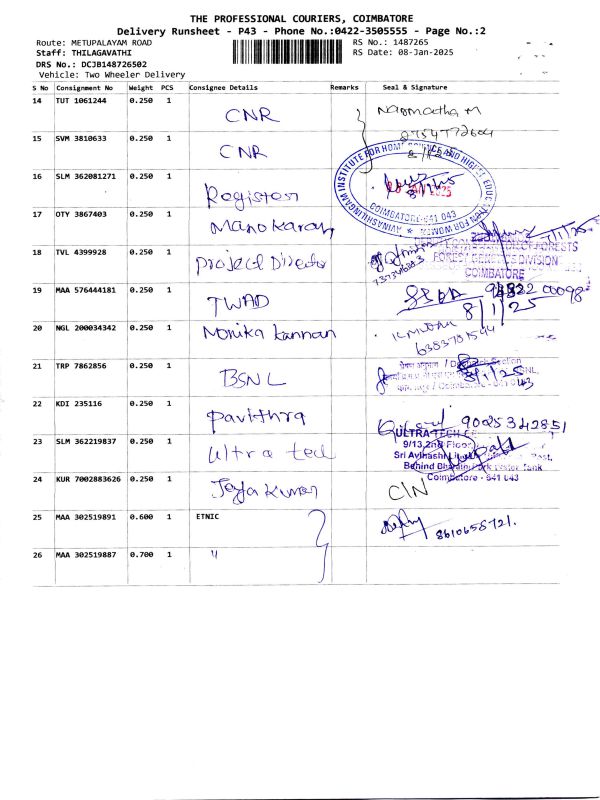 THE PROFESSIONAL COURIERS, COIMBATORE
Delivery Runsheet - P43 - Phone No.:0422-3505555 - Page No.:2
Route: METUPALAYAM ROAD RS No.: 1487265
Staff: THILAGAVATHI RS Date: 08-Jan-2025
DRS No.: DCJB148726502
Vehicle: Two Wheeler Delivery
S No Consignment No Weight PCS Consignee Details Remarks Seal & Signature
14 TUT 1061244 0.250 1 CNR
15 SVM 3810633 0.250 1 CNR
8/1/25
AVINASHILINGAM INSTITUTE FOR HOME SCIENCE AND HIGHER EDUCATION FOR WOMEN
COIMBATORE-641 043
16 SLM 362081271 0.250 1 Register
17 OTY 3867403 0.250 1 Manokaran
18 TVL 4399928 0.250 1 Project Director
FOREST GENETICS DIVISION
COIMBATORE
19 MAA 576444181 0.250 1 TWAD
8/1/25
20 NGL 200034342 0.250 1 Monika Kannan
6383781594
21 TRP 7862856 0.250 1 BSNL
8/1/25
22 KDI 235116 0.250 1 Pavithra 9025342851
23 SLM 362219837 0.250 1 Ultra tech
ULTRA TECH
9/13, 2nd Floor
Sri Avinashi
Behind Bharathi Park Water Tank
Coimbatore - 641 043
24 KUR 7002883626 0.250 1 Jeyakumar CIN
25 MAA 302519891 0.600 1 ETNIC 8610658721.
26 MAA 302519887 0.700 1 "